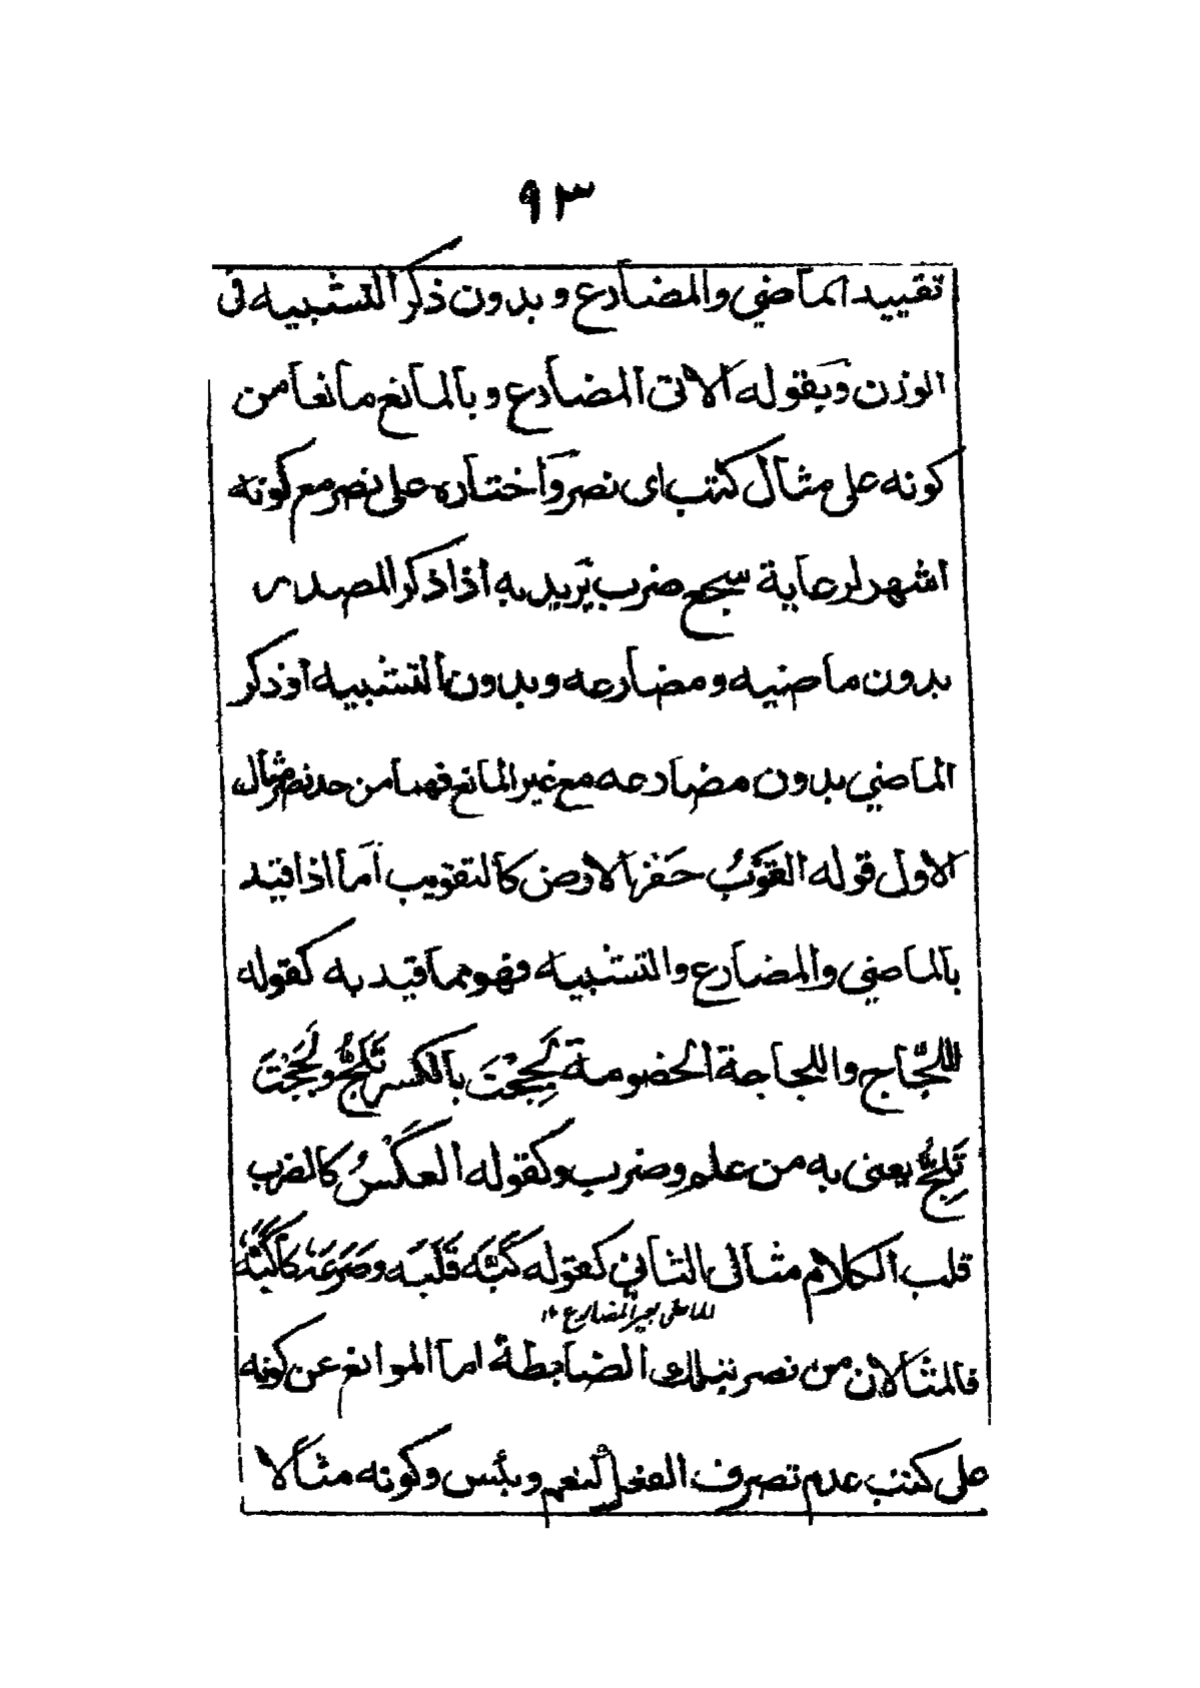 ٩٣
تقييد الماضي والمضارع و بدون ذكر التشبيه فى
الوزن وَبقوله الاتى المضارع و بالمانع مانعا من
كونه على مثال كتب اى نصر واختاره على نصر مع كونه
اشهر لرعاية سجع ضرب يريد به اذا ذكر المصدر
بدون ماضيه ومضارعه و بدون التشبيه او ذكر
الماضي بدون مضارعه مع غير المانع فهما من حد نصر مثال
الاول قوله القَوْبُ حَفْر الارض كالتقويب أما اذا قيد
بالماضي والمضارع والتشبيه فهو مما قيد به كقوله
اللَّجاج واللجاجة الخصومة لَجِجْتَ بالكسر تَلَجُّ و لَجَجْتَ
تَلِجُّ يعنى به من علم وضرب وكقوله العَكْسُ كالضرب
قلب الكلام مثال الثانى كقوله كَبَّه قَلَبَه وصَرَعَه كأَكَبَّه
الماضى بغير المضارع ١٢
فالمثالان من نصر بتلك الضابطة اما الموانع عن كونه
على كتب عدم تصرف الفعل كنعم وبئس وكونه مثالا